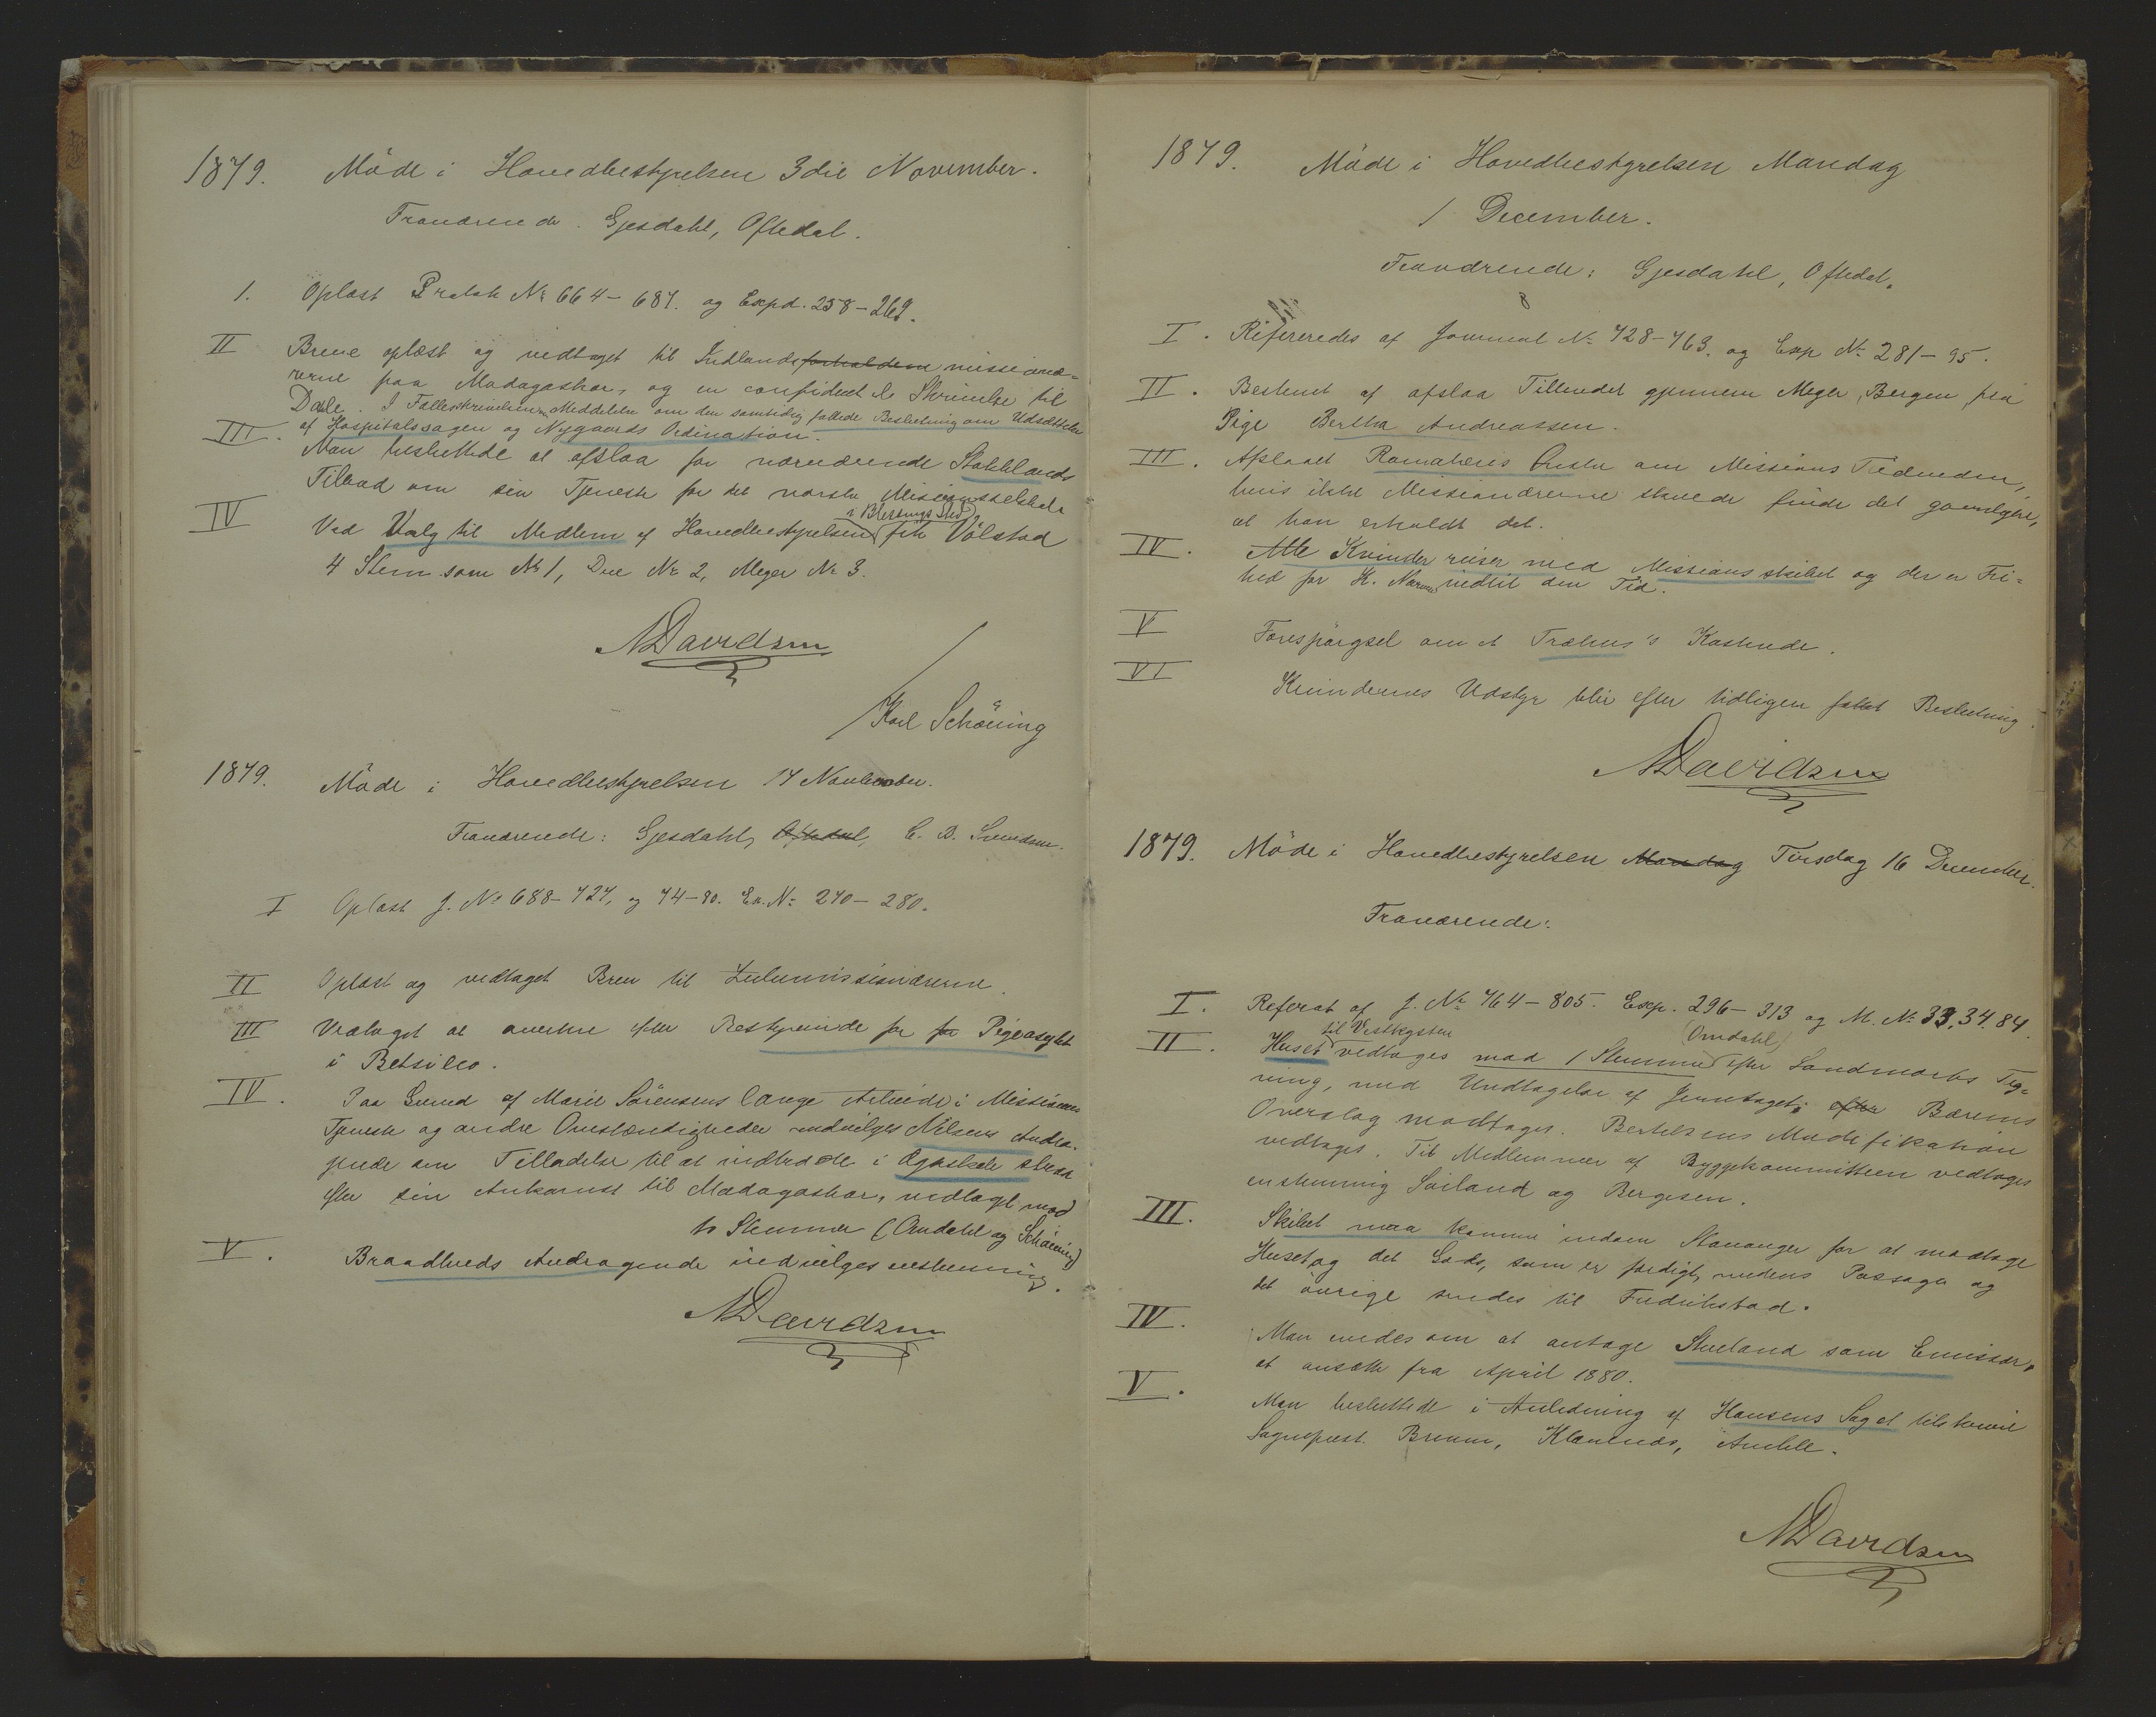 1879. Möde i Hovedbestyrelsen 3die November.
Fraværende. Gjesdahl, Oftedal.
1. Oplæst Protok No 664-687. og Expd. 258-269.
II Breve oplæst og vedtaget til Indlandsforholdene missionæ-
rerne paa Madagaskar, og en confident le Skrivelse til
Dahle. I Fællesskrivelsen Meddelelse om den samtidig fattede Beslutning om Udsættelse
af Hospitalssagen og Nygaards Ordination.
III. Man besluttede at afslaa for nærværende Stokklands
Tilbud om sin Tjeneste for det norske Missionsselskab
IV Ved Valg til Medlem af Hovedbestyrelsen (i Blessings Sted) fik Völstad
4 Stem. som No 1, Due No 2, Meyer No 3.
NDavidsen
Karl Schöning
1879. Möde i Hovedbestyrelsen 17 November.
Fraværende: Gjesdahl, Oftedal, C. D. Svendsen.
I Oplæst J. No 688-727, og 74-80. Ex. No 270-280.
II Oplæst og vedtaget Brev til Zulumissionærerne.
III Vedtaget at averter efter Bestyrerinde for for Pigeasylet
i Betsileo.
IV. Paa Grund af Marie Sörensens lange Arbeide i Missionens
Tjeneste og andre Omstændigheder indvilges Nilsens Andra-
gende om Tilladelse til at indtræde i Ægteskab strax
efter sin Ankomst til Madagaskar, vedtaget mod
to Stemmer (Omdahl og Schöning)
V. Braadtveds Andragende indvilges enstemmig.
NDavidsen
1879. Möde i Hovedbestyrelsen Mandag
1 December.
Fraværende: Gjesdahl, Oftedal.
8
I. Refereredes af Journal No 728-763. og Exp No 281-95.
II. Bestemt at afslaa Tilbudet gjennem Meyer, Bergen fra
Pige Bertha Andreassen.
III. Afslaaet Ramaheris Önske om Missions Tidenden,
hvis ikke Missionærerne skulde finde det gavnligere,
at han erholdt det.
IV. Alle Kvinder reiser med Missionsskibet og der er Fri-
hed for K. Nærum indtil den Tid.
V Forespörgsel om et Træhus's Kostende.
VI Kvindernes Udstyr blir efter tidligere fattet Beslutning.
NDavidsen
1879. Möde i Hovedbestyrelsen Mandag Tirsdag 16 December.
Fraværende:
I. Referat af J. No 764-805. Exp. 296-313 og M. No 33, 34. 84.
II. Huset til Vestkysten vedtages mod 1 Stemme (Omdahl) efter Sandmarks Teg-
ning, med Undtagelse af Jerntaget; efter Bærems
Overslag modtages. Bertelsens Modifikation
vedtages. Til Medlemmer af Byggekommitteen vedtoges
enstemmig Soiland og Bergesen.
III. Skibet maa komme indom Stavanger for at modtage
Huset og det Gods, som er færdigt, medens Passager og
det övrige sendes til Fredrikstad.
IV. Man enedes om at antage Stueland som Emissær,
at ansætte fra April 1880.
V. Man besluttede i Anledning af Hansens Sag at tilskrive
Sognepræst. Bruun, Klævenes, Amble.
NDavidsen